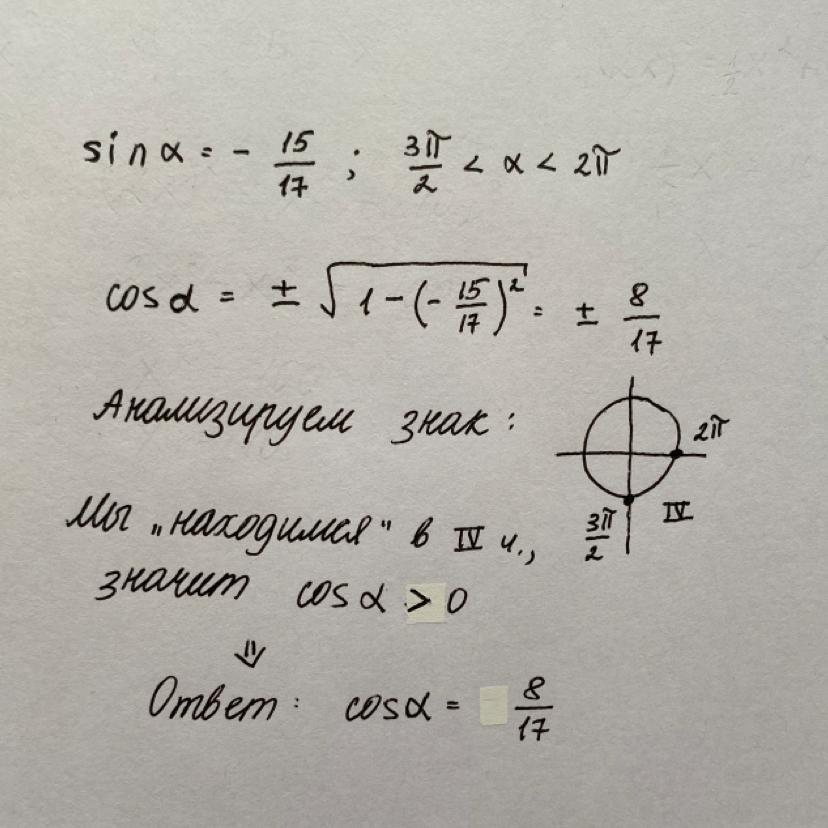 sin α = - 15/17 ; 3π/2 < α < 2π
cos α = ± √(1 - (- 15/17)²) = ± 8/17
Анализируем знак :
2π
Мы „находимся“ в IV ч.,
3π/2
IV
значит cos α > 0
⇓
Ответ : cos α = 8/17